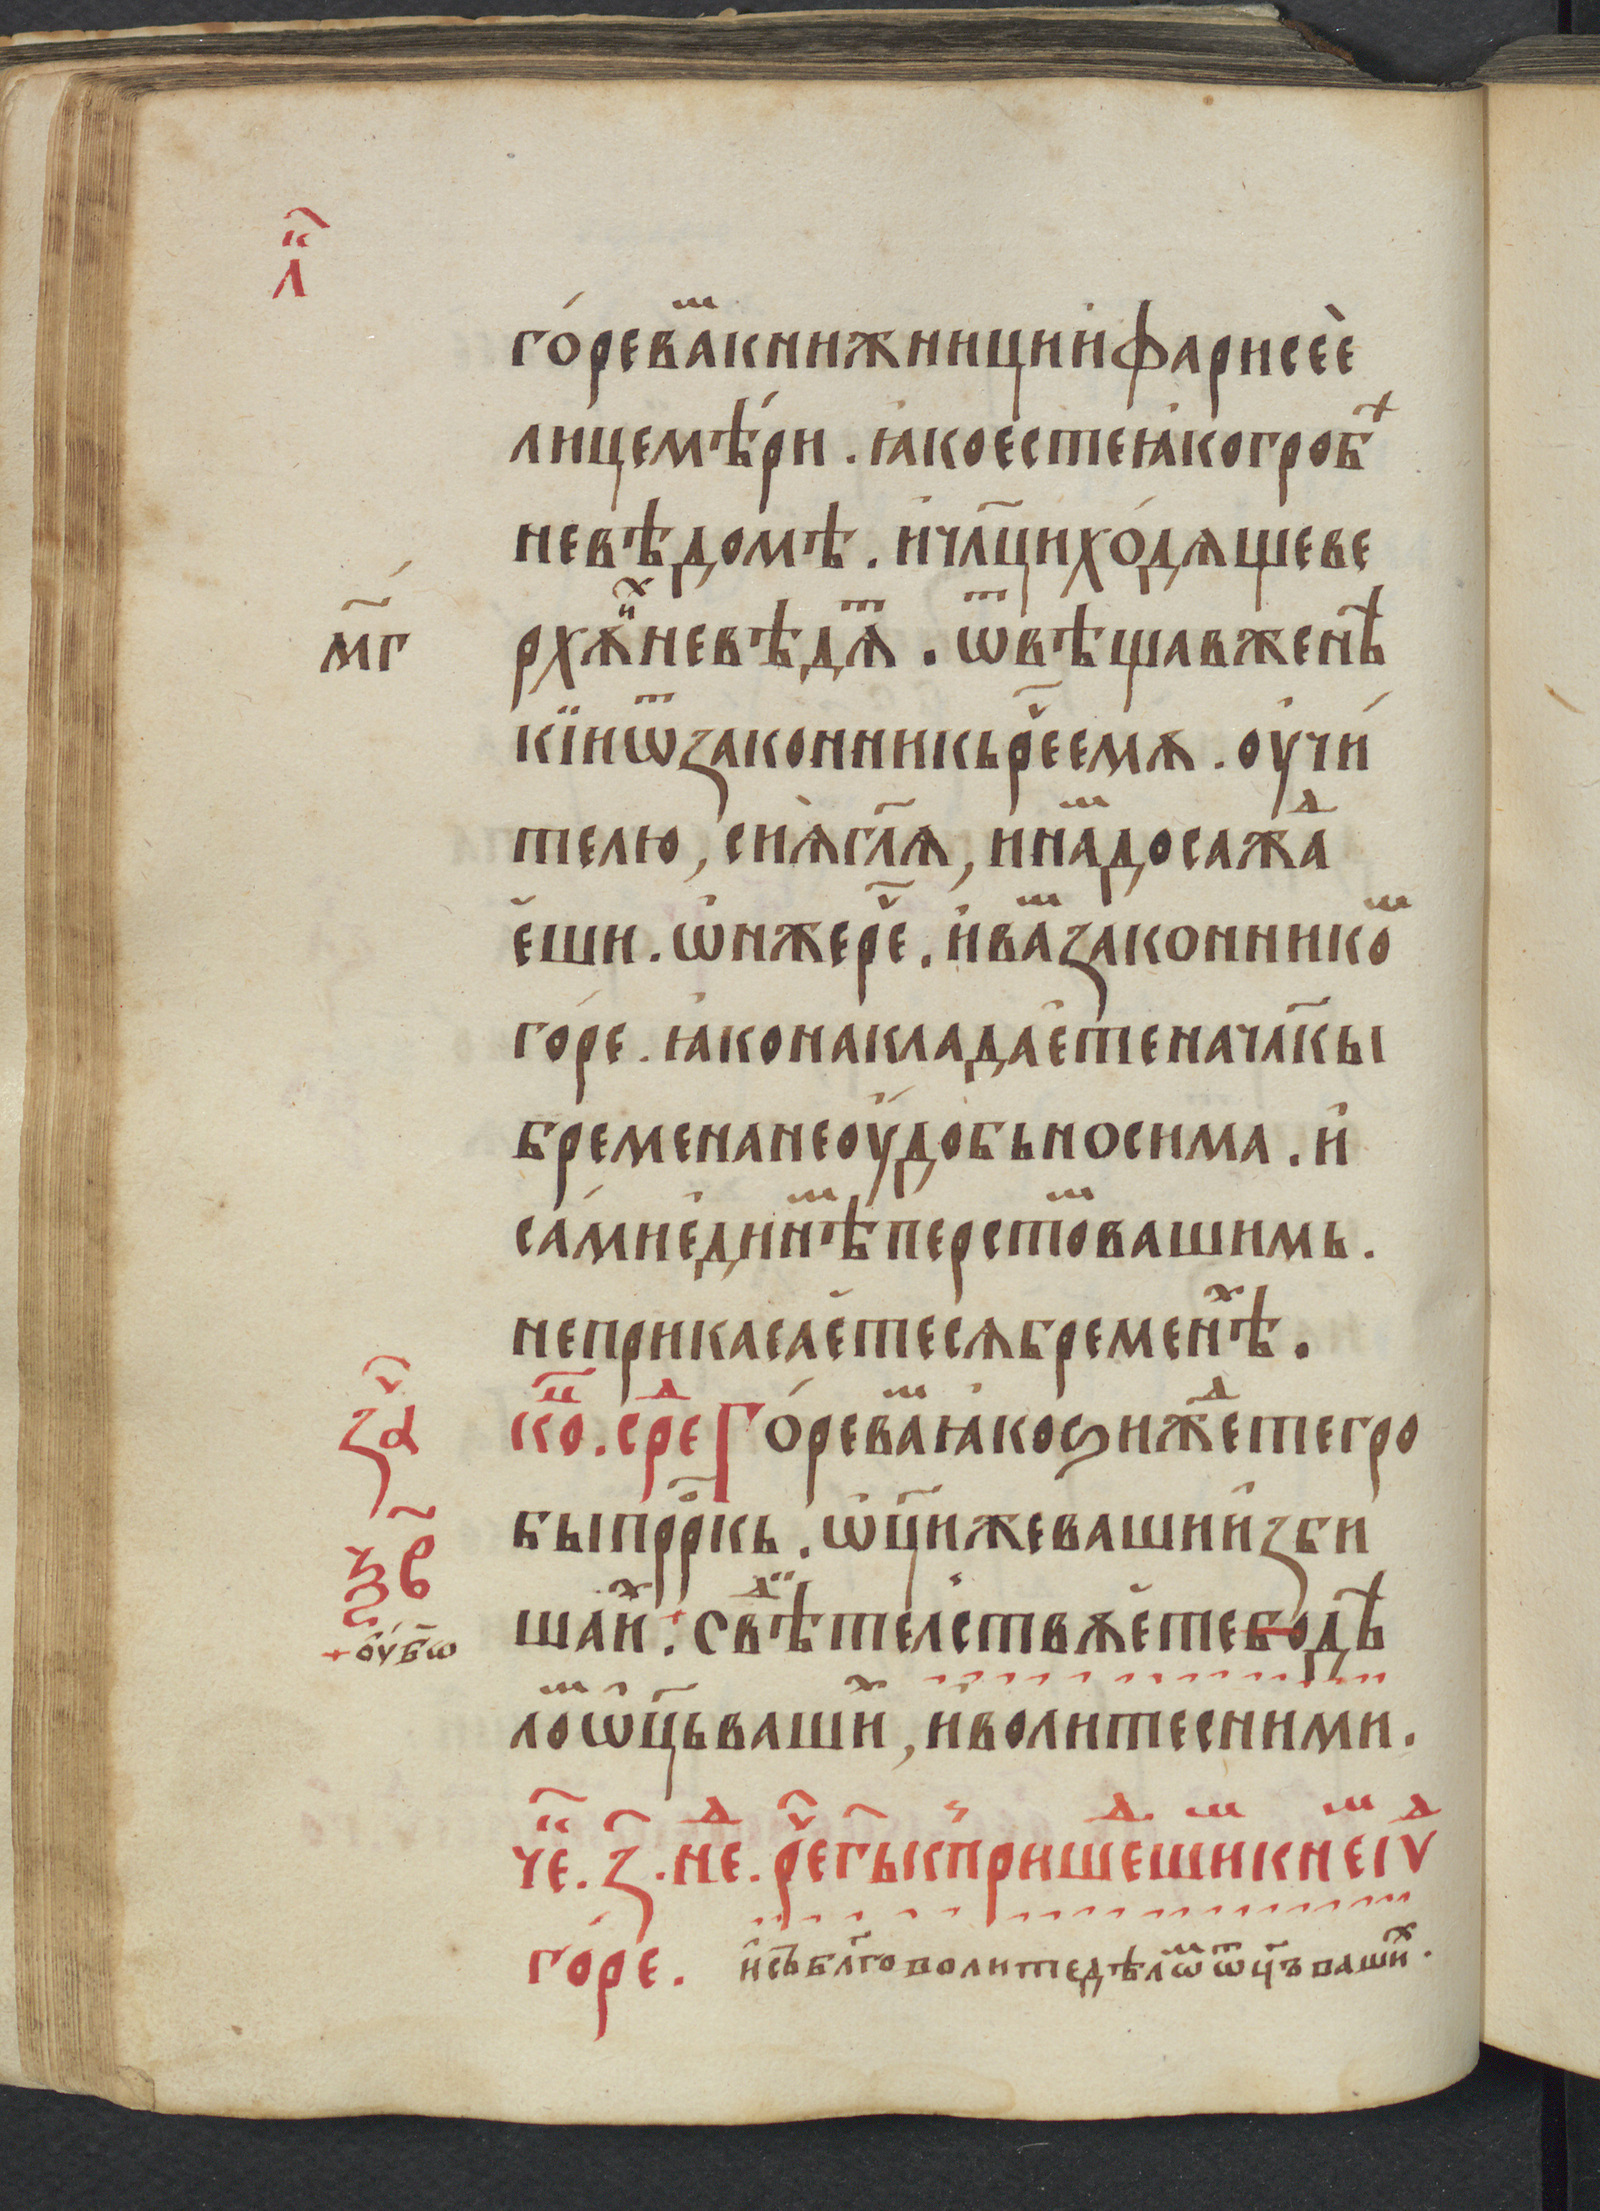 л҃к
го́ре ва́ⷨ книжници и҆ фарисе́е
лицемѣ́ри . ꙗ҆ко есте ꙗ҆ко гробⷯ
невѣдомѣ . и҆ чл҃ци хо́дѧще ве
м҃г
рхѫ иⷯ не вѣдѧⷮ . ѿвѣщав же нѣ
кїи ѿ законникь рⷱ҇е емѫ . оучи́
телю , сиѧ̀ гл҃ѧ , и наⷭ҇ досажⷣа
еши . ѡ҆н же рⷱ҇е . и҆ ваⷨ законникоⷨ
го́ре . ꙗ҆ко накладае҆те на чл҃кы
бремена не оу҆добь носима . и҆
са́ми еди҆нѣⷨ перстоⷨ вашимь .
не прикасае҆те сѧ бременѣⷯ .
за҃ч
к҃ц . срⷣе Го́ре ваⷨ ꙗ҆ко ѕижⷣете гро
бы пр҃ркь . ѡ҆ц҃и же ваши и҆зби
ѯ҃в
шаиⷯ : + свⷣѣтелствѫе҆те бо дѣ
+ оу҆бѡ
лоⷨ ѡ҆ц҃ь вашиⷯ , и҆ волите с ними .
чеⷦ҇ . з҃ . неⷣ . рⷱ҇е г҃ь к пришеⷣшиⷨ к неⷨ іѵⷣ
го́ре . и҆ съблаговолите дѣлѡⷨ ѿц҃ъ вашиⷯ .